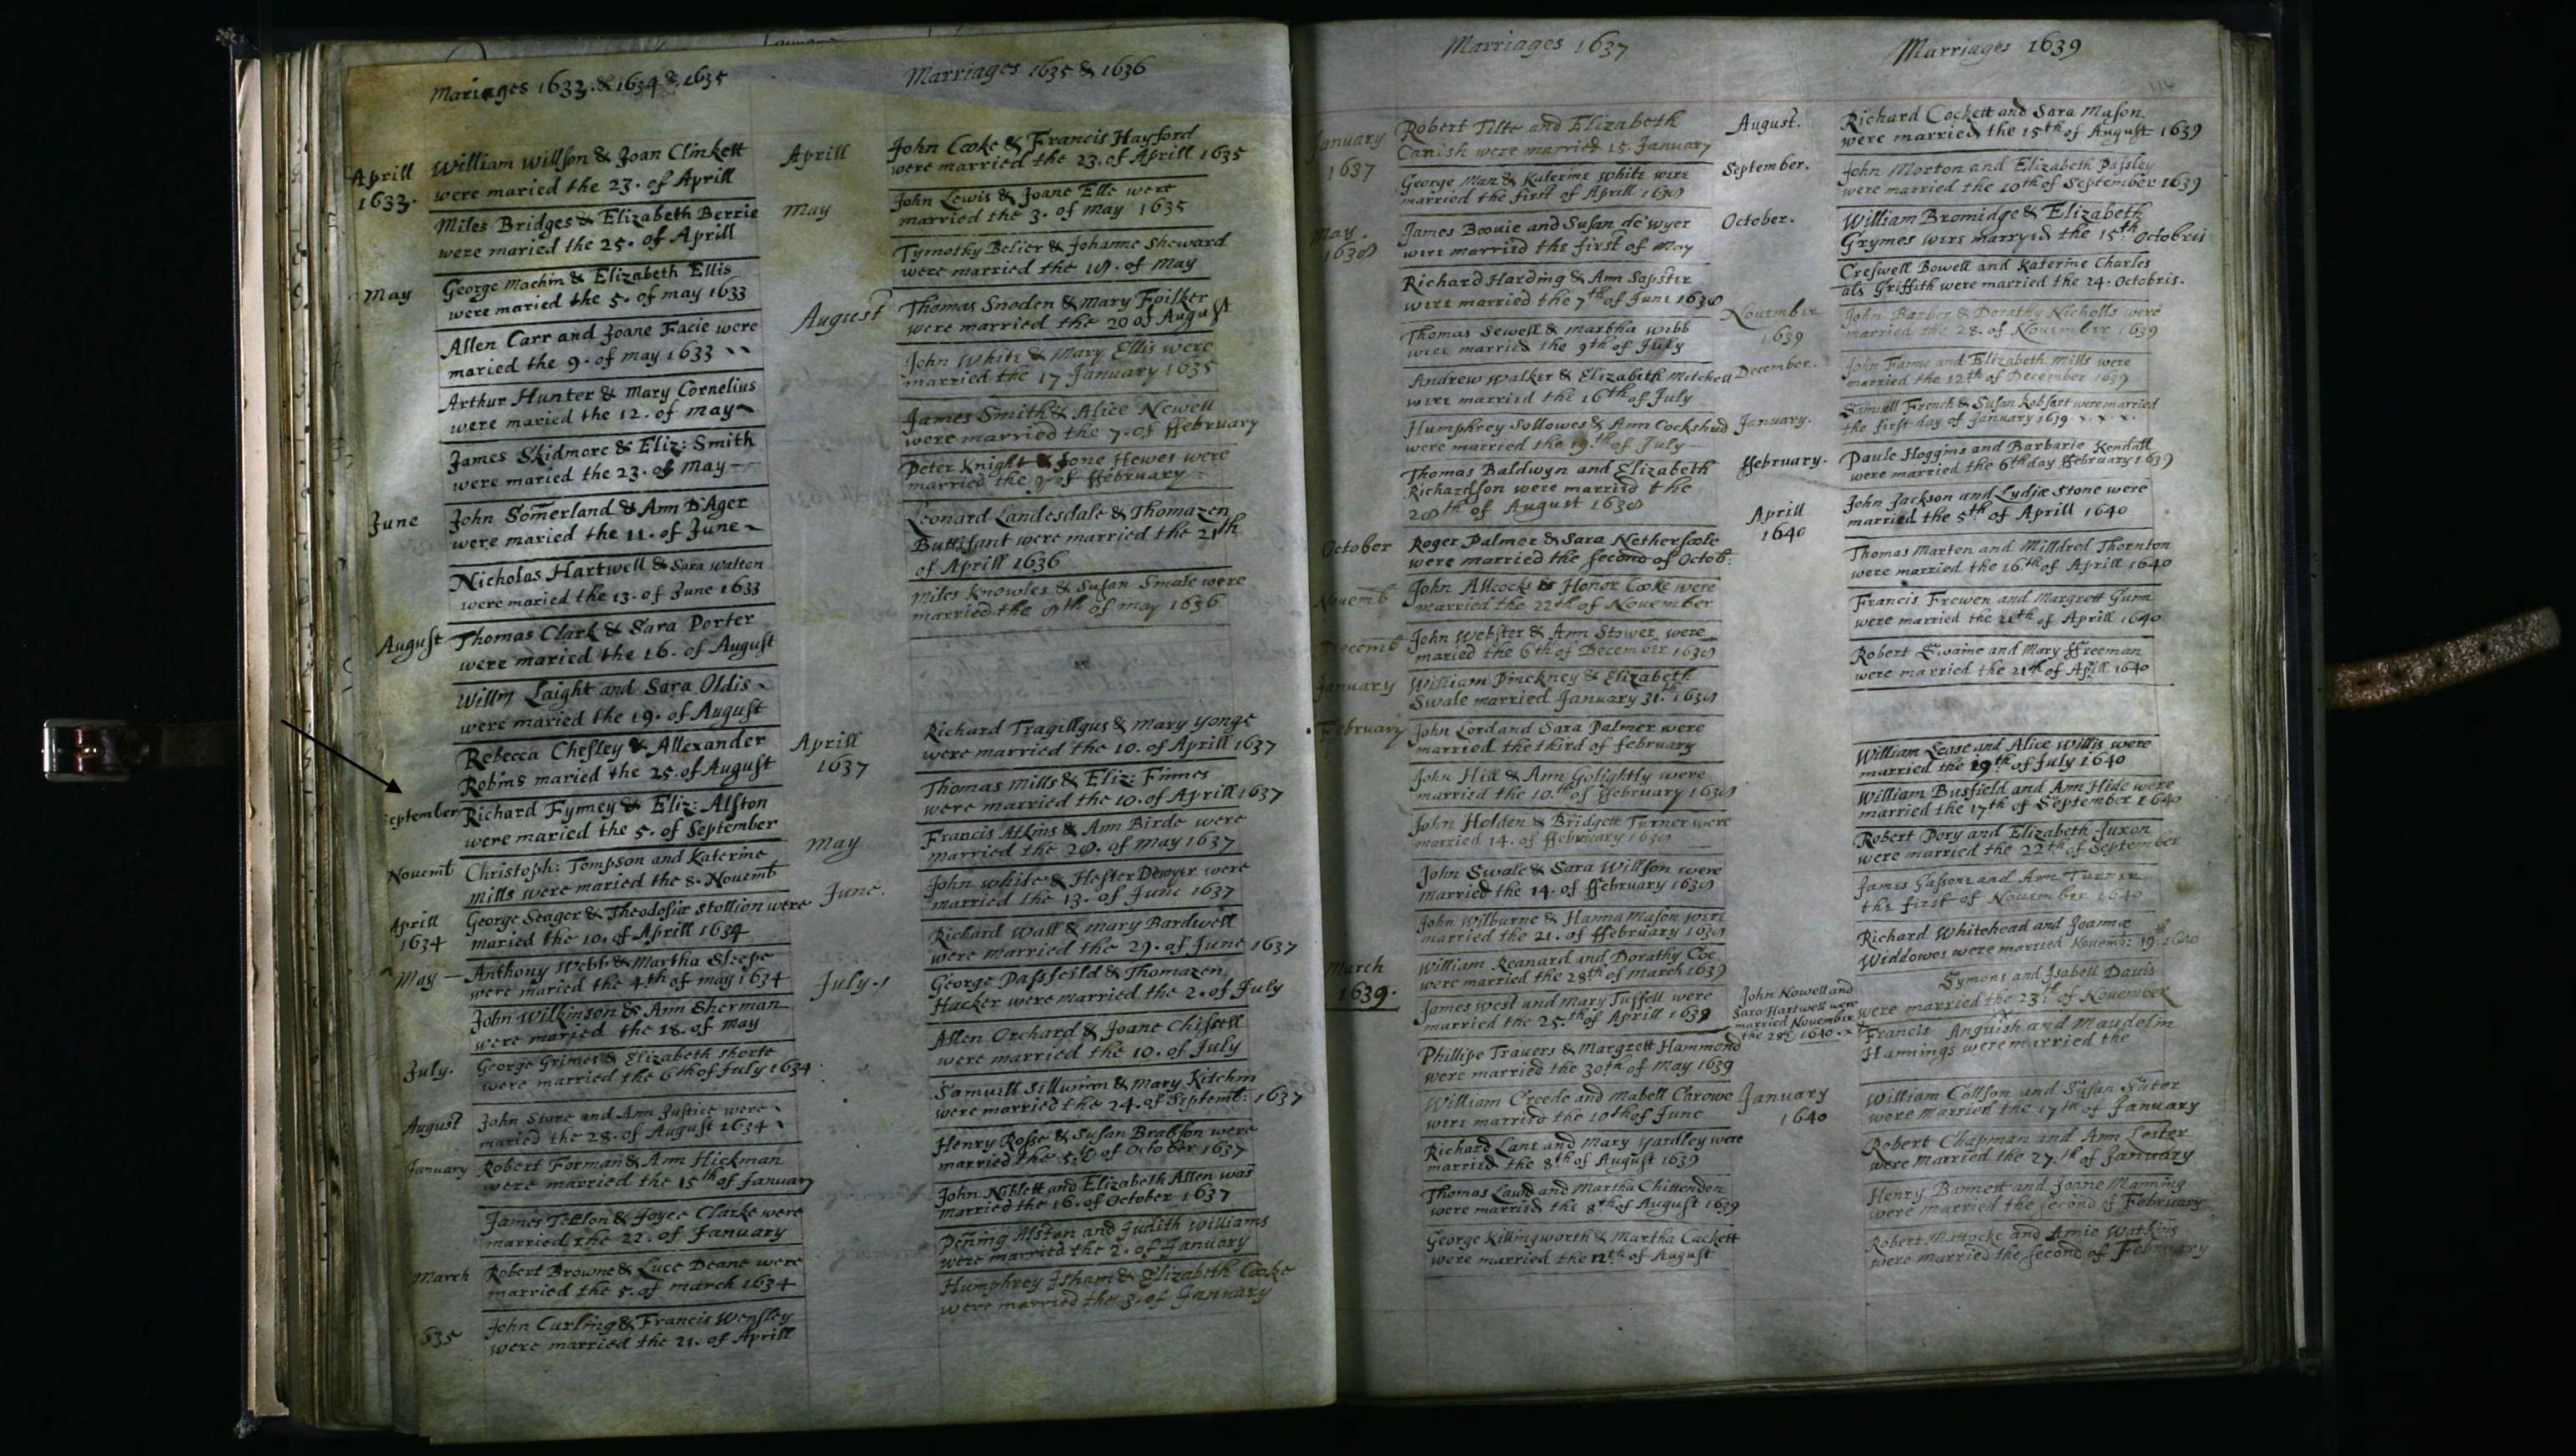 Mariages 1633. & 1634 & 1635
Aprill
1633.
William Willson & Joan Clinkett
were maried the 23. of Aprill
Miles Bridges & Elizabeth Berrie
were maried the 25. of Aprill
May
George Machin & Elizabeth Ellis
were maried the 5. of may 1633
Allen Carr and Joane Facie were
maried the 9. of may 1633
Arthur Hunter & Mary Cornelius
were maried the 12. of may
James Skidmore & Eliz: Smith
were maried the 23. of May
June
John Somerland & Ann D'Ager
were maried the 11. of June
Nicholas Hartwell & Sara Watton
were maried the 13. of June 1633
August
Thomas Clark & Sara Porter
were maried the 16. of August
Willm Laight and Sara Oldis
were maried the 19. of August
Rebecca Chesley & Allexander
Robins maried the 25. of August
eptember
Richard Fynney & Eliz: Alston
were maried the 5. of September
Novemb
Christoph: Tompson and Katerine
Mills were maried the 8. Novemb
Aprill
1634
George Seager & Theodosia Stollion were
maried the 10. of Aprill 1634
May
Anthony Webb & Martha Sleepe
were maried the 4th of may 1634
John Wilkinson & Ann Sherman
were maried the 18. of may
July.
George Grimes & Elizabeth Shorte
were married the 6th of July 1634
August
John Stare and Ann Justice were
maried the 28. of August 1634
January
Robert Forman & Ann Hickman
were married the 15th of January
James & Joyce Clarke were
married the 22. of January
March
Robert Browne & Luce Deane were
married the 5. of march 1634
635
John Curling & Francis Wensley
were married the 21. of Aprill
Marriages 1635 & 1636
Aprill
John Cooke & Francis Hayford
were married the 23. of Aprill 1635
May
John Lewis & Joane Elle were
married the 3. of may 1635
Tymothy Belier & Johanne Sheward
were married the 18. of May
August
Thomas Snoden & Mary Foilker
were married the 20 of August
John White & Mary Ellis were
married the 17 January 1635
James Smith & Alice Newell
were married the 7. of ffebruary
Peter Knight & Jone Hewes were
married the 9 of ffebruary
Leonard Landesdale & Thomazen
Buttifant were married the 21th
of Aprill 1636
Miles Knowles & Susan Smale were
married the 8th of may 1636
Aprill
1637
Richard Tragillgus & Mary Yonge
were married the 10. of Aprill 1637
Thomas Mills & Eliz: Finnes
were married the 10. of Aprill 1637
May
Francis Atkins & Ann Birde were
married the 28. of may 1637
June.
John White & Hester Dewyer were
married the 13. of June 1637
Richard Wall & Mary Bardwell
were married the 29. of June 1637
July.
George Passfeild & Thomazen
Hacker were married the 2. of July
Allen Orchard & Joane Chissell
were married the 10. of July
Samuell Sillwinn & Mary Kitchin
were married the 24. of Septemb: 1637
Henry Rosse & Susan Brabson were
married the 5. of October 1637
John Noblett and Elizabeth Allen was
married the 16. of October 1637
Pening Alston and Judith Williams
were married the 2. of January
Humphrey Isham & Elizabeth Cooke
were married the 3. of January
Marriages 1637
January
1637
Robert Tilte and Elizabeth
Canish were married 15. January
George Man & Katerine White were
married the first of Aprill 1638
May.
1638
James Beouie and Susan de'wyer
were married the first of May
Richard Harding & Ann Sapster
were married the 7th of June 1638
Thomas Sewell & Martha Webb
were married the 9th of July
Andrew Walker & Elizabeth Mitchell
were married the 16th of July
Humphrey Sollowes & Ann Cockshud
were married the 19.th of July
Thomas Baldwyn and Elizabeth
Richardson were married the
28th of August 1638
October
Roger Palmer & Sara Nethersole
were married the second of Octob:
Novemb
John Allcocks & Honor Cooke were
married the 22th of November
Decemb
John Webster & Ann Stower were
maried the 6th of December 1638
January
William Pinckney & Elizabeth
Swale married January 31.th 1638
February
John Lord and Sara Palmer were
married the third of february
John Hill & Ann Golightly were
married the 10.th of ffebruary 1638
John Holden & Bridgett Turner were
married 14. of ffebruary 1638
John Swale & Sara Willson were
married the 14. of ffebruary 1638
John Wilburne & Hanna Mason were
married the 21. of ffebruary 1638
March
1639.
William Reanard and Dorathy Coe
were married the 28th of march 1639
James West and Mary Tuffell were
married the 25.th of Aprill 1639
Phillipe Travers & Margrett Hammond
were married the 30th of May 1639
William Creede and Mabell Carowe
were married the 10th of June
Richard Lane and Mary Yardley were
married the 8th of August 1639
Thomas Lawd and Martha Chittenden
were married the 8th of August 1639
George Killingworth & Martha Cackett
were married the 12th of August
Marriages 1639
August.
Richard Cockett and Sara Mason
were married the 15th of August 1639
September.
John Morton and Elizabeth Passley
were married the 10th of September 1639
October.
William Bromidge & Elizabeth
Grymes were marryed the 15th Octobris
Creswell Bowell and Katerine Charles
als Griffith were married the 24. Octobris.
November
1639
John Barber & Dorathy Nicholls were
married the 28. of November 1639
December.
John Farme and Elizabeth Mills were
married the 12th of December 1639
January.
Samuell French & Susan Robsart were married
the first day of January 1639
ffebruary.
Paule Hoggins and Barbarie Kendall
were married the 6th day ffebruary 1639
Aprill
1640
John Jackson and Lydia Stone were
married the 5th of Aprill 1640
Thomas Marten and Milldred Thornton
were married the 16.th of Aprill 1640
Francis Frewen and Margrett Gunn
were married the 21th of Aprill 1640
Robert Swaine and Mary ffreeman
were married the 21th of Aprill 1640
William Lease and Alice Willis were
married the 19th of July 1640
William Busfield and Ann Hide were
married the 17th of September 1640
Robert Pory and Elizabeth Juxon
were married the 22th of September
James Gassone and Ann Turner
the first of November 1640
Richard Whitehead and Joanna
Widdowes were married Novemb: 19.th 1640
Symons and Isabell Davis
were married the 23.th of November
John Nowell and
Sara Hartwell were
married November
the 28th 1640.
Francis Anguish and Maudelin
Hannings were married the
January
1640
William Collson and Susan Suter
were married the 17th of January
Robert Chapman and Ann Lester
were married the 27.th of January
Henry Bannett and Joane Manning
were married the second of February
Robert Mattocke and Amie Watkins
were married the second of February